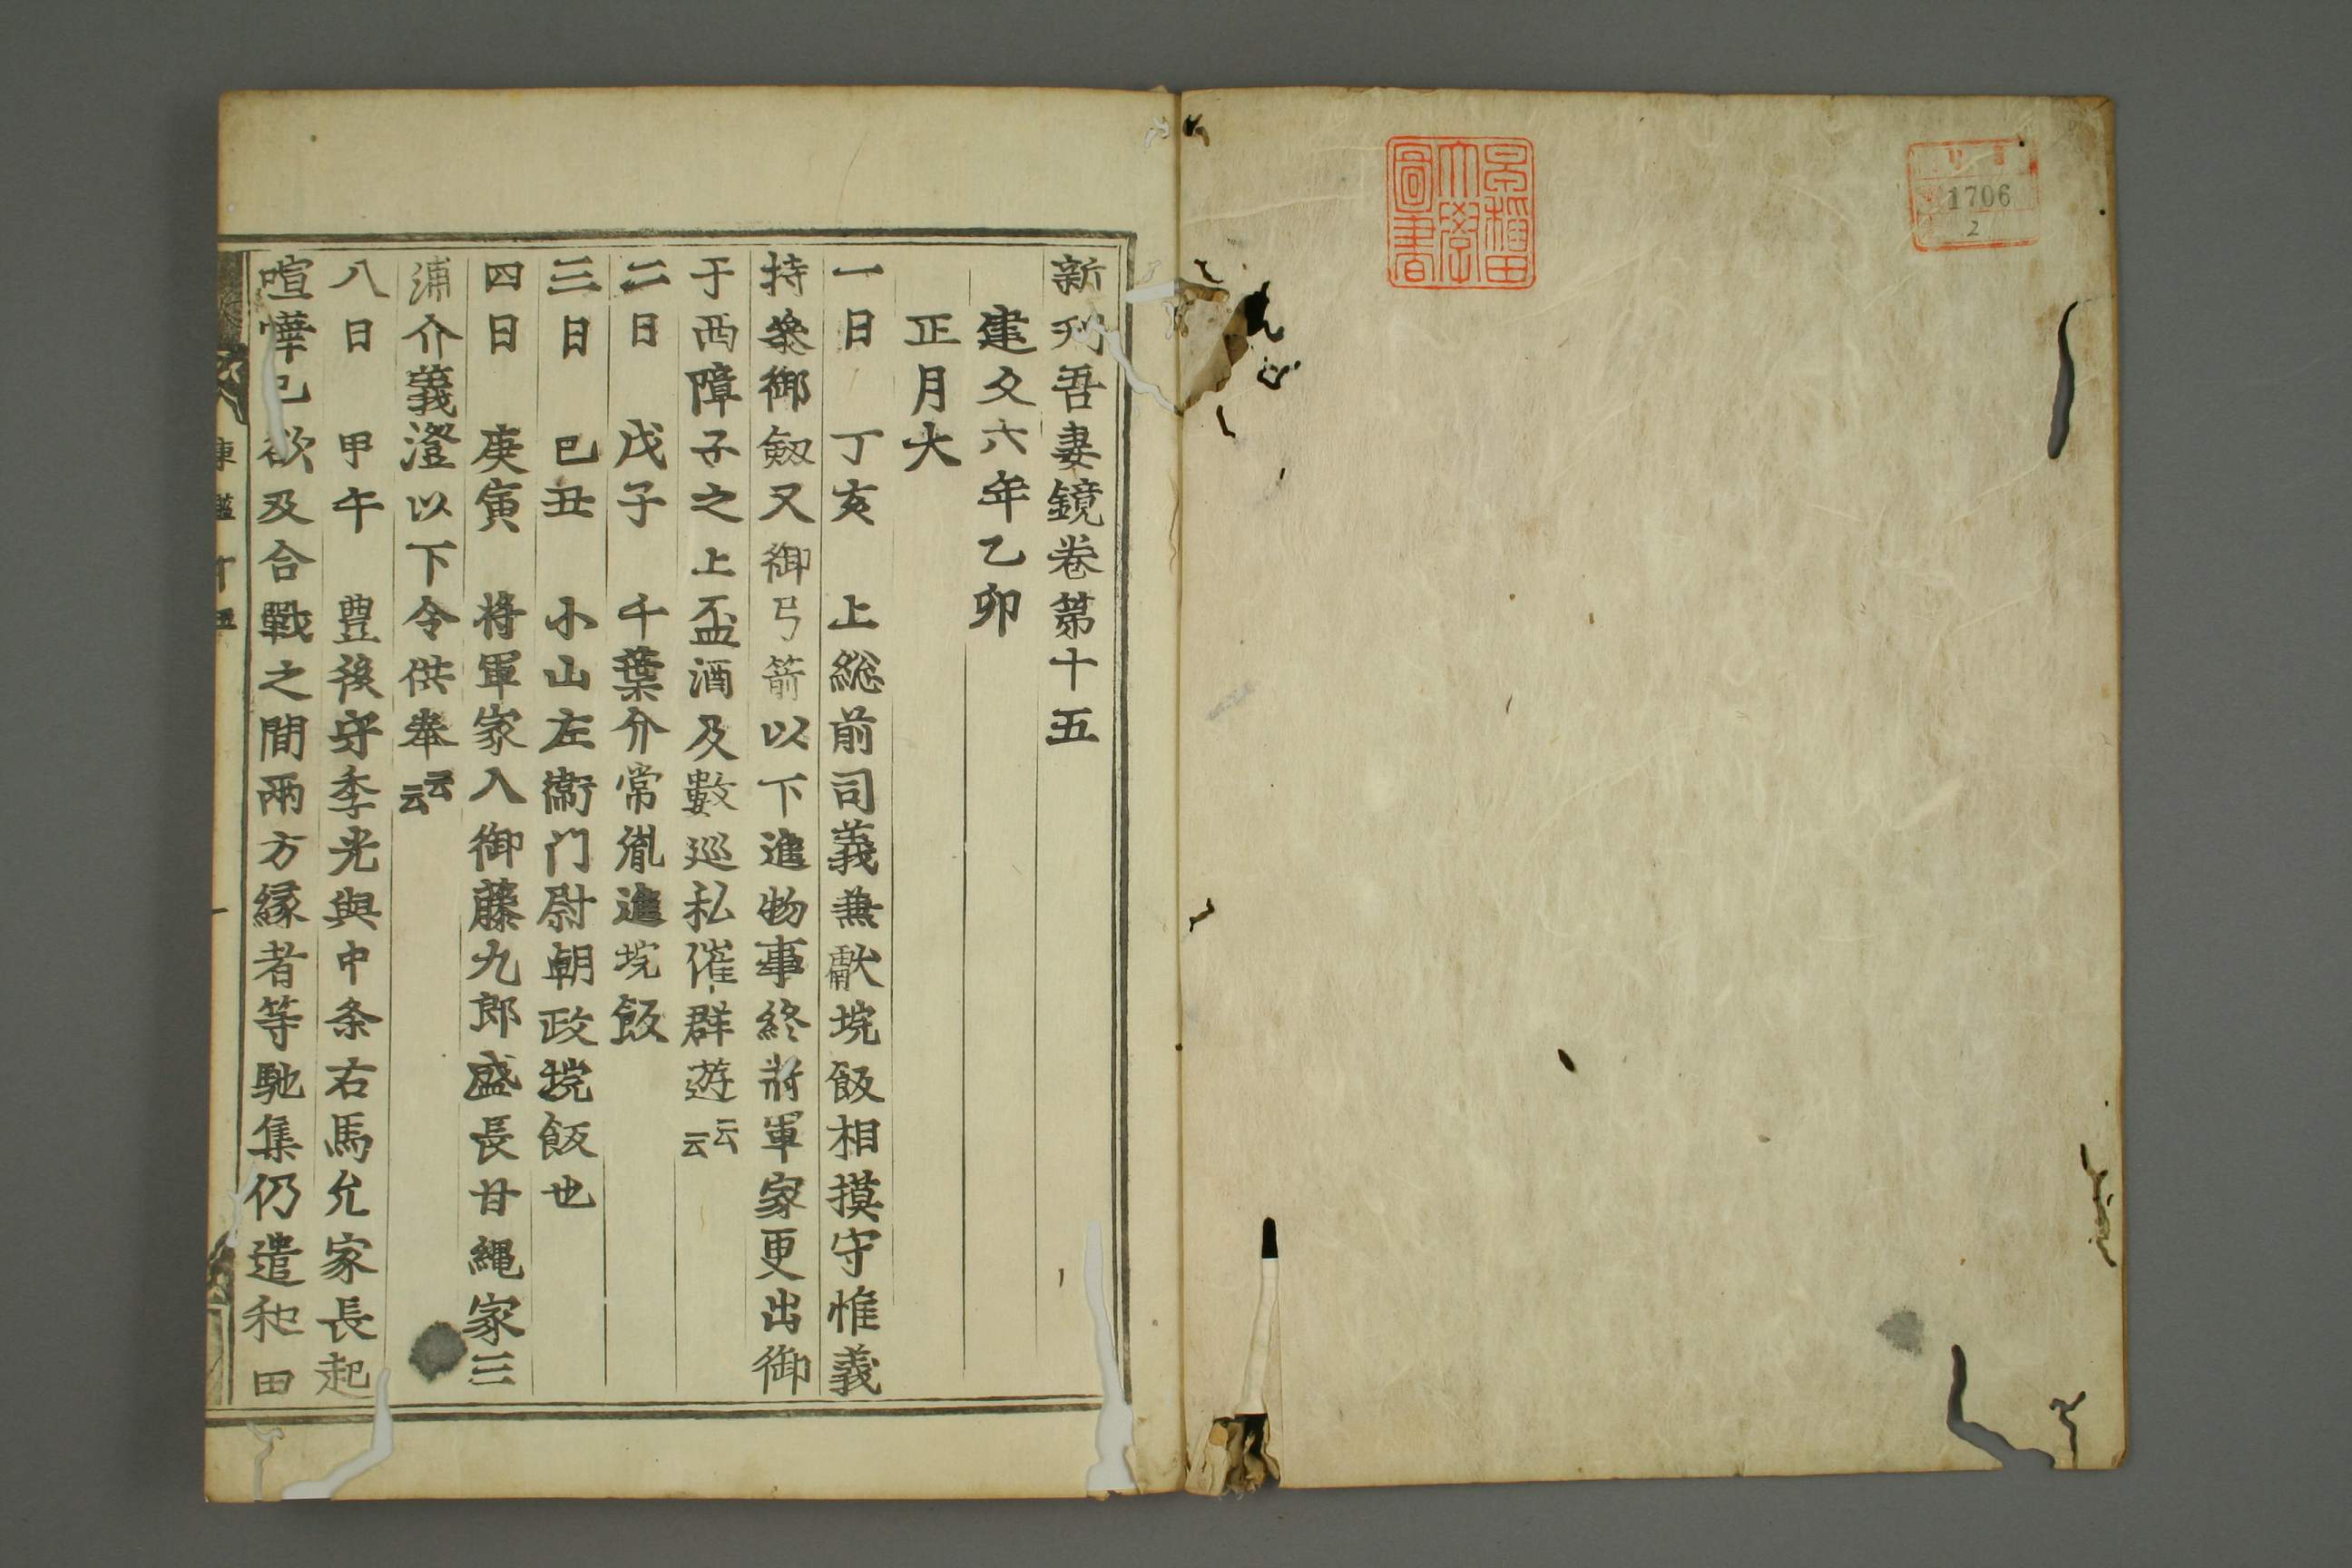 早稲田大學圖書
1706
2
新刊吾妻鏡卷第十五
建久六年乙卯
正月大
一日 丁亥 上総前司義兼献埦飯相摸守惟義
持參御劔又御弓箭以下進物事終將軍家更出御
于西障子之上盃酒及數巡私催群遊云云
二日 戊子 千葉介常胤進埦飯
三日 巳丑 小山左衞门尉朝政埦飯也
四日 庚寅 将軍家入御藤九郎盛長甘縄家三
浦介義澄以下令供奉云云
八日 甲午 豊後守季光與中条右馬允家長起
喧嘩已欲及合戰之間兩方縁者等馳集仍遣和田
東鑑十五
一